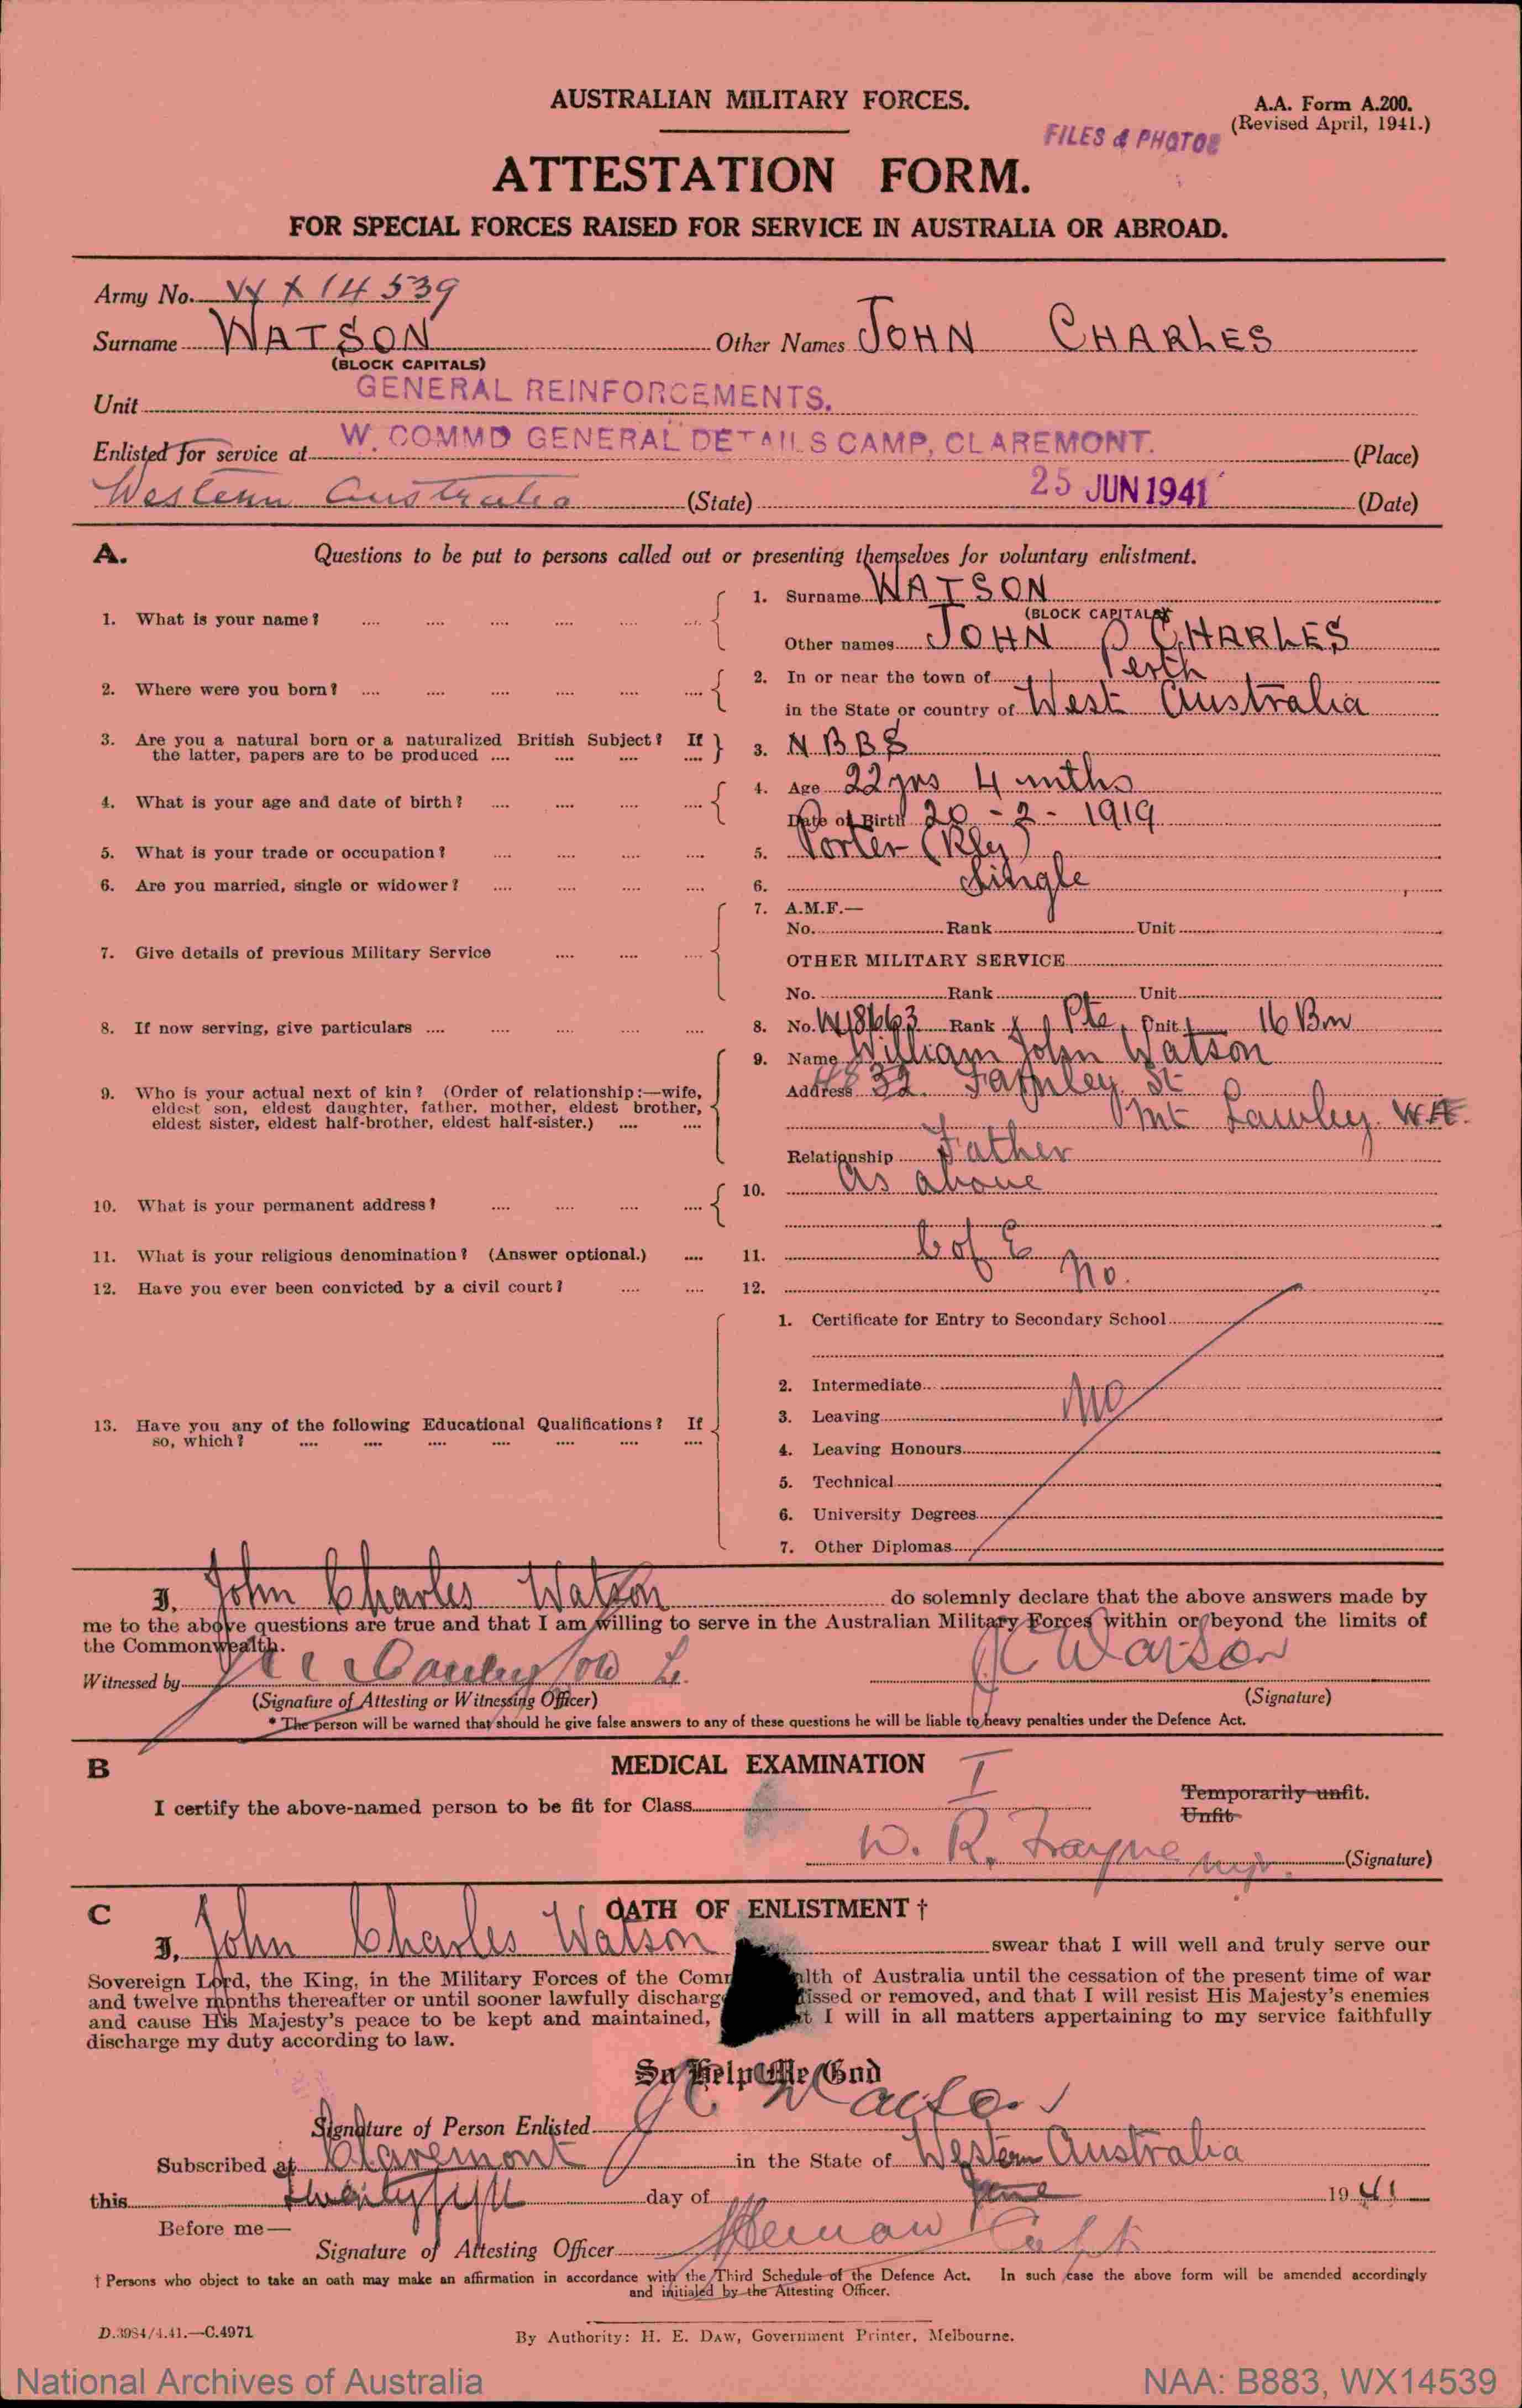 AUSTRALIAN MILITARY FORCES.
A.A. Form A.200.
(Revised April, 1941.)
FILES & PHOTOS
ATTESTATION FORM.
FOR SPECIAL FORCES RAISED FOR SERVICE IN AUSTRALIA OR ABROAD.
Army No. WX14539
Surname WATSON Other Names JOHN CHARLES
(BLOCK CAPITALS)
Unit GENERAL REINFORCEMENTS.
Enlisted for service at W. COMMD GENERAL DETAILS CAMP, CLAREMONT. (Place)
Western Australia (State) 25 JUN 1941 (Date)
A. Questions to be put to persons called out or presenting themselves for voluntary enlistment.
1. What is your name? 1. Surname WATSON
(BLOCK CAPITALS)
Other names JOHN CHARLES
2. Where were you born? 2. In or near the town of Perth
in the State or country of West Australia
3. Are you a natural born or a naturalized British Subject? If the latter, papers are to be produced 3. NBBS
4. What is your age and date of birth? 4. Age 22 yrs 4 mths
Date of Birth 20 - 2 - 1919
5. What is your trade or occupation? 5. Porter (Rly)
6. Are you married, single or widower? 6. Single
7. Give details of previous Military Service 7. A.M.F.—
No. Rank Unit
OTHER MILITARY SERVICE
No. Rank Unit
8. If now serving, give particulars 8. No. Rank Pte Unit 16 Bn
9. Who is your actual next of kin? (Order of relationship:—wife, eldest son, eldest daughter, father, mother, eldest brother, eldest sister, eldest half-brother, eldest half-sister.) 9. Name William John Watson
Address 32 St
Mt Lawley. W.A.
Relationship Father
10. What is your permanent address? 10. As above
11. What is your religious denomination? (Answer optional.) 11. C of E
12. Have you ever been convicted by a civil court? 12. No.
13. Have you any of the following Educational Qualifications? If so, which?
1. Certificate for Entry to Secondary School
2. Intermediate
No
3. Leaving
4. Leaving Honours
5. Technical
6. University Degrees
7. Other Diplomas
I, John Charles Watson do solemnly declare that the above answers made by
me to the above questions are true and that I am willing to serve in the Australian Military Forces within or beyond the limits of
the Commonwealth.
J C Watson
Witnessed by Lt.
(Signature of Attesting or Witnessing Officer) (Signature)
* The person will be warned that should he give false answers to any of these questions he will be liable to heavy penalties under the Defence Act.
B MEDICAL EXAMINATION
I certify the above-named person to be fit for Class I
Temporarily unfit.
Unfit
W. R. (Signature)
C OATH OF ENLISTMENT †
I, John Charles Watson swear that I will well and truly serve our
Sovereign Lord, the King, in the Military Forces of the Com alth of Australia until the cessation of the present time of war
and twelve months thereafter or until sooner lawfully discharg issed or removed, and that I will resist His Majesty's enemies
and cause His Majesty's peace to be kept and maintained, t I will in all matters appertaining to my service faithfully
discharge my duty according to law.
So Help Me God
Signature of Person Enlisted J C Watson
Subscribed at Claremont in the State of Western Australia
this twentyfifth day of June 1941
Before me—
Signature of Attesting Officer Capt
† Persons who object to take an oath may make an affirmation in accordance with the Third Schedule of the Defence Act. In such case the above form will be amended accordingly
and initialed by the Attesting Officer.
D.3984/4.41.—C.4971
By Authority: H. E. DAW, Government Printer, Melbourne.
National Archives of Australia NAA: B883, WX14539